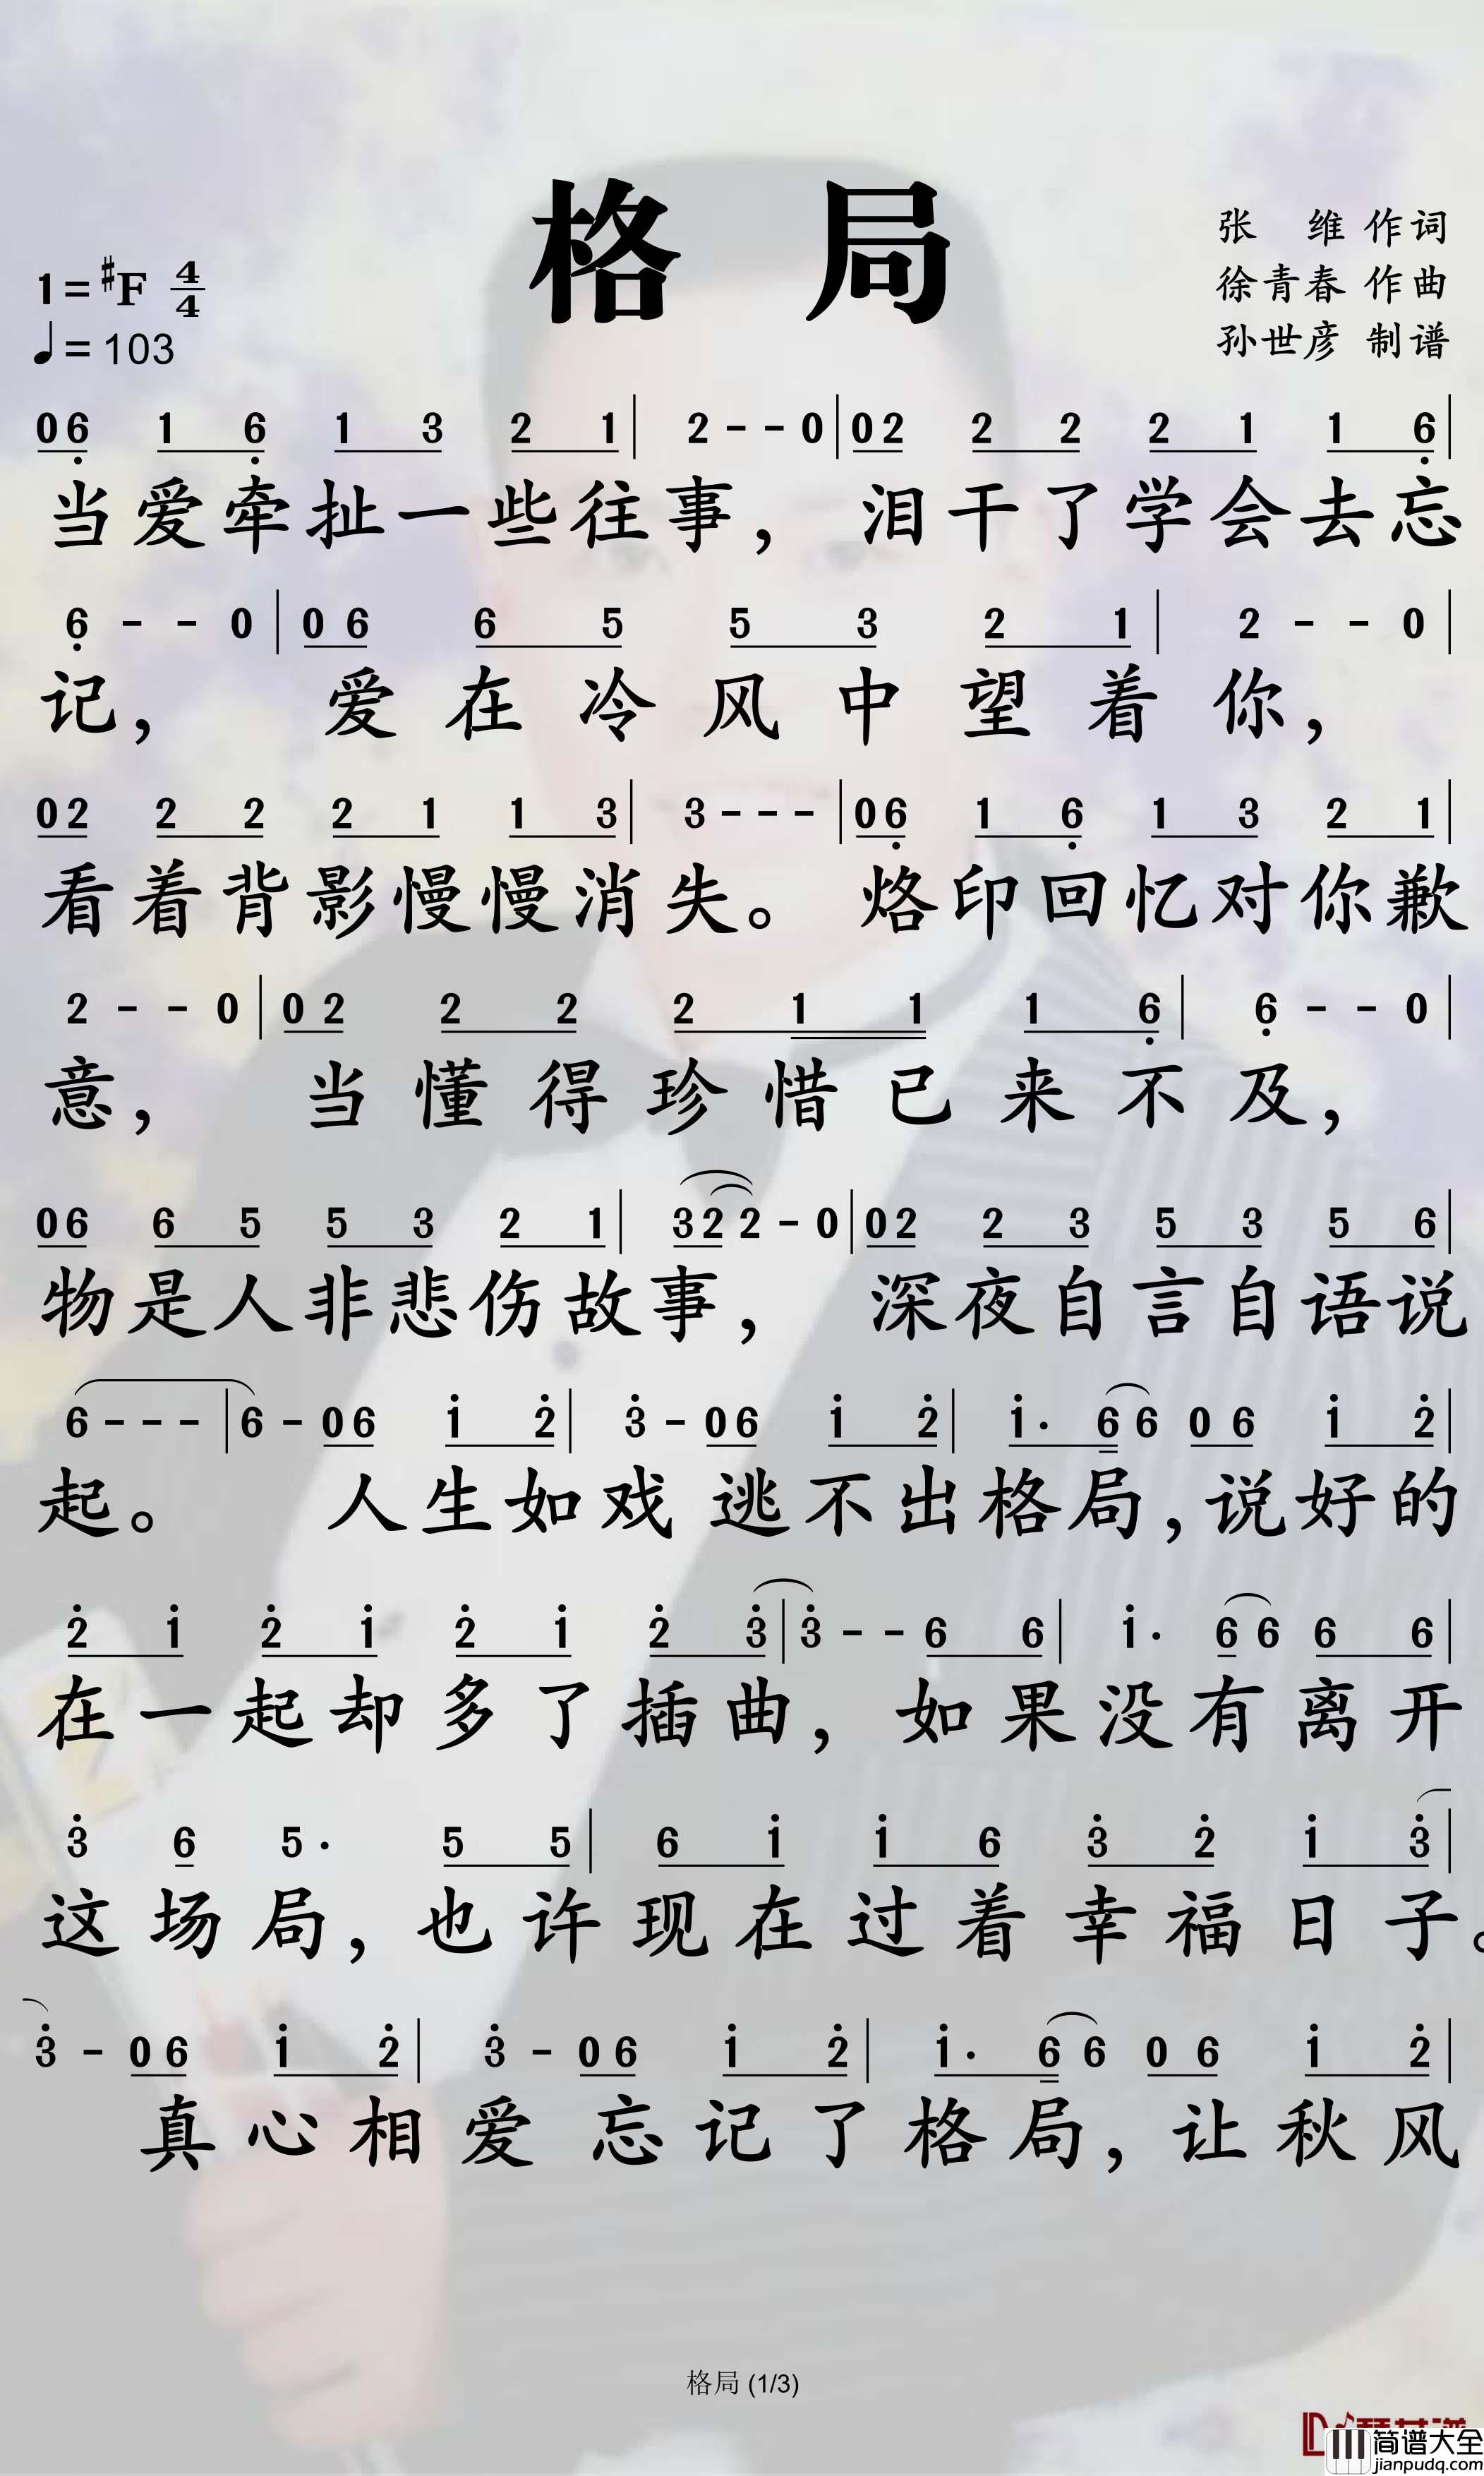 格 局
张 维 作词
徐青春 作曲
孙世彦 制谱
1=♯F 4/4
♩=103
0 6̣ 1 6̣ 1 3 2 1 | 2 - - 0 | 0 2 2 2 2 1 1 6̣ |
当爱牵扯一些往事，泪干了学会去忘
6̣ - - 0 | 0 6 6 5 5 3 2 1 | 2 - - 0 |
记，爱在冷风中望着你，
0 2 2 2 2 1 1 3 | 3 - - - | 0 6̣ 1 6̣ 1 3 2 1 |
看着背影慢慢消失。烙印回忆对你歉
2 - - 0 | 0 2 2 2 2 1 1 1 6̣ | 6̣ - - 0 |
意，当懂得珍惜已来不及，
0 6 6 5 5 3 2 1 | 3 2 2 - 0 | 0 2 2 3 5 3 5 6 |
物是人非悲伤故事，深夜自言自语说
6 - - - | 6 - 0 6 1̇ 2̇ | 3̇ - 0 6 1̇ 2̇ | 1̇ · 6 6 0 6 1̇ 2̇ |
起。人生如戏逃不出格局，说好的
2̇ 1̇ 2̇ 1̇ 2̇ 1̇ 2̇ 3̇ | 3̇ - - 6 6 | 1̇ · 6 6 6 6 |
在一起却多了插曲，如果没有离开
3̇ 6 5 · 5 5 | 6 1̇ 1̇ 6 3̇ 2̇ 1̇ 3̇ |
这场局，也许现在过着幸福日子。
3̇ - 0 6 1̇ 2̇ | 3̇ - 0 6 1̇ 2̇ | 1̇ · 6 6 0 6 1̇ 2̇ |
真心相爱忘记了格局，让秋风
格局 (1/3)
简谱大全
jianpudq.com